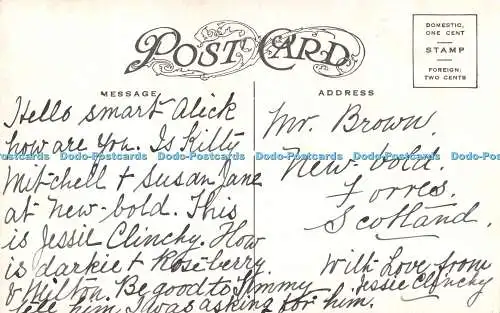 POST CARD
DOMESTIC,
ONE CENT
STAMP
FOREIGN,
TWO CENTS
MESSAGE
Hello smart Alick
how are you. Is Kitty
Mitchell + Susan Jane
at New-bold. This
is Jessie Clinchy. How
is darkie + Rose-berry
& Milton. Be good to Jimmy
tell him I was asking for him.
ADDRESS
Mr. Brown.
New-bold.
Forres.
Scotland.
With Love from
Jessie Clinchy
Dodo-Postcards Dodo-Postcards Dodo-Postcards Dodo-Postcards Dodo-Postcards